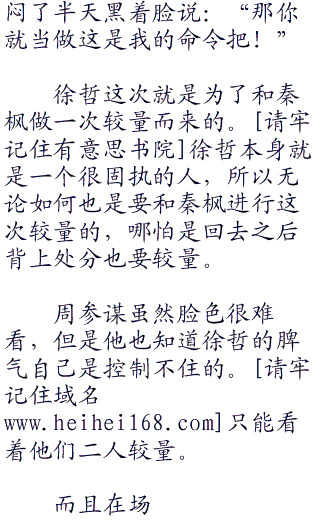 闷了半天黑着脸说：“那你
就当做这是我的命令把！”
徐哲这次就是为了和秦
枫做一次较量而来的。[请牢
记住有意思书院]徐哲本身就
是一个很固执的人，所以无
论如何也是要和秦枫进行这
次较量的，哪怕是回去之后
背上处分也要较量。
周参谋虽然脸色很难
看，但是他也知道徐哲的脾
气自己是控制不住的。[请牢
记住域名
www.heihei168.com]只能看
着他们二人较量。
而且在场